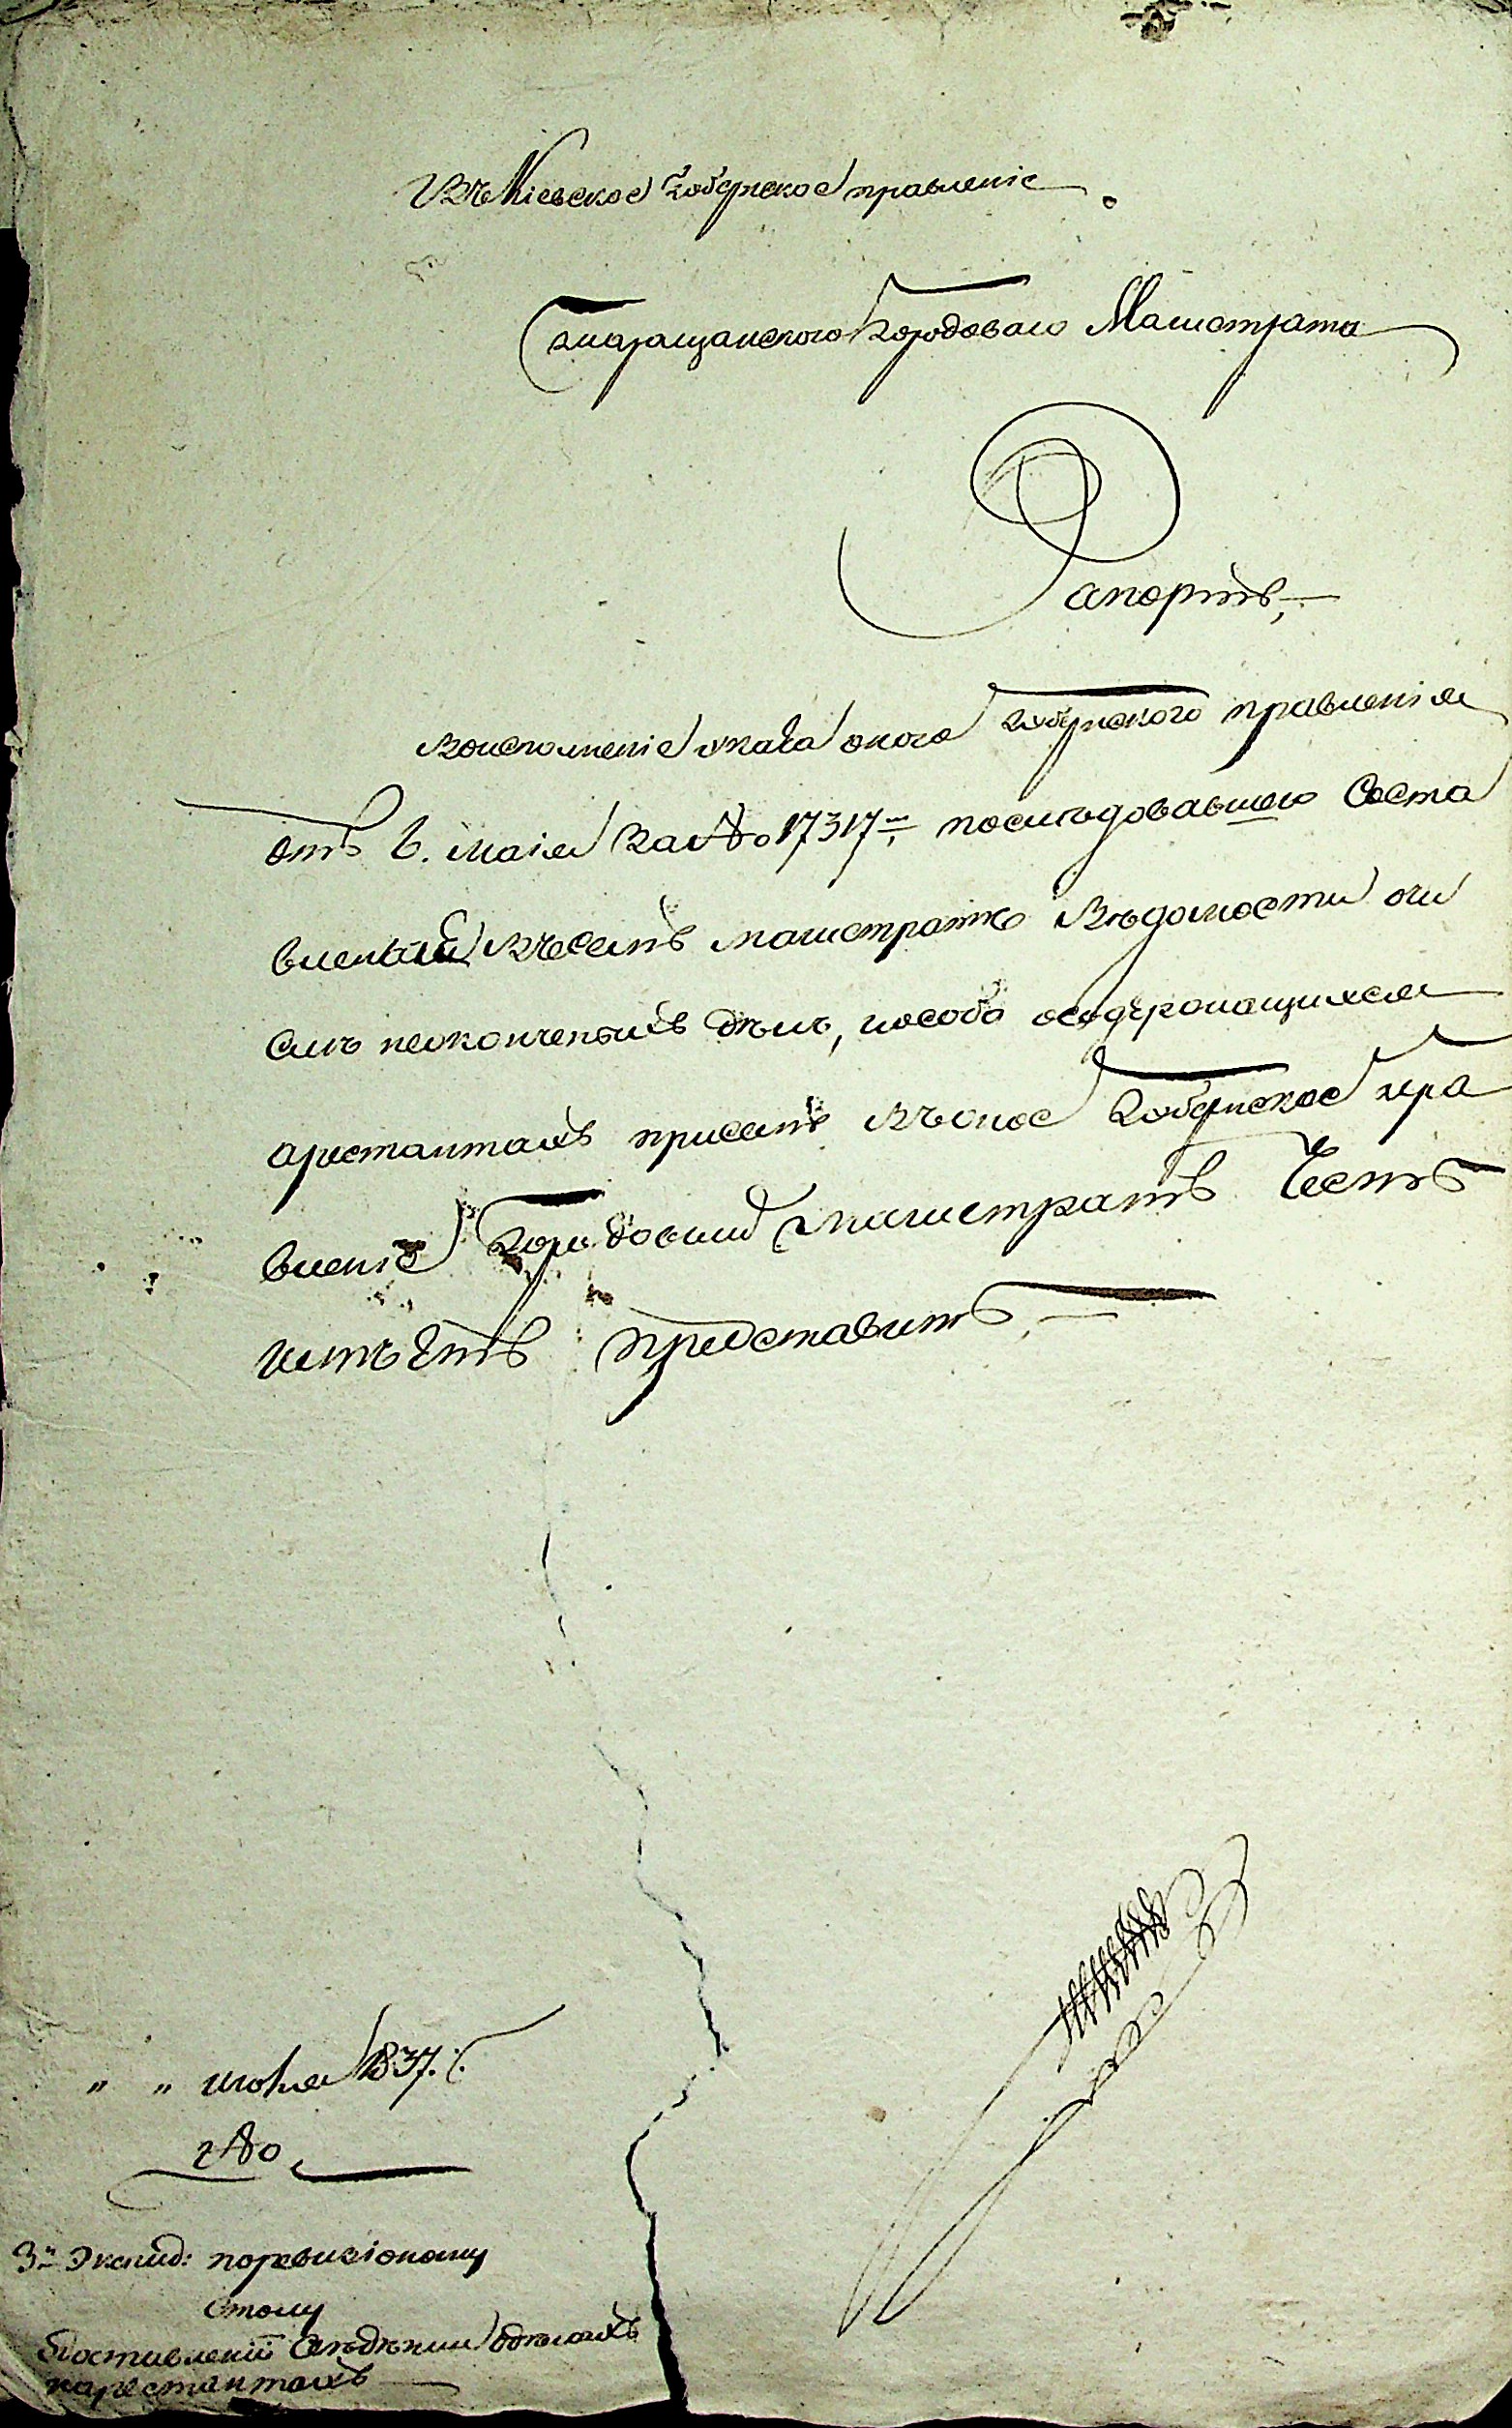 Въ Кіевское Губернское правленіе.
Таращанского Городоваго Магистрата
Рапортъ,
Воисполненіе указа оного Губернского правленія
отъ 6. маія за № 17317ᵐ, последовавшего Соста
вленыя всемъ магистратѣ Вѣдомости очи
слѣ неоконченыхъ дѣлъ, иособо осодержащихся
арестантахъ присемъ Въоное Губернское пра
вленіе Городовый магистратъ Честь
имѣетъ представить,
" " июня 1837. г.
№
3й Экспед: поревизіоному
Столу
Одоставленіи Свѣдѣнии одѣлахъ
иарестантахъ